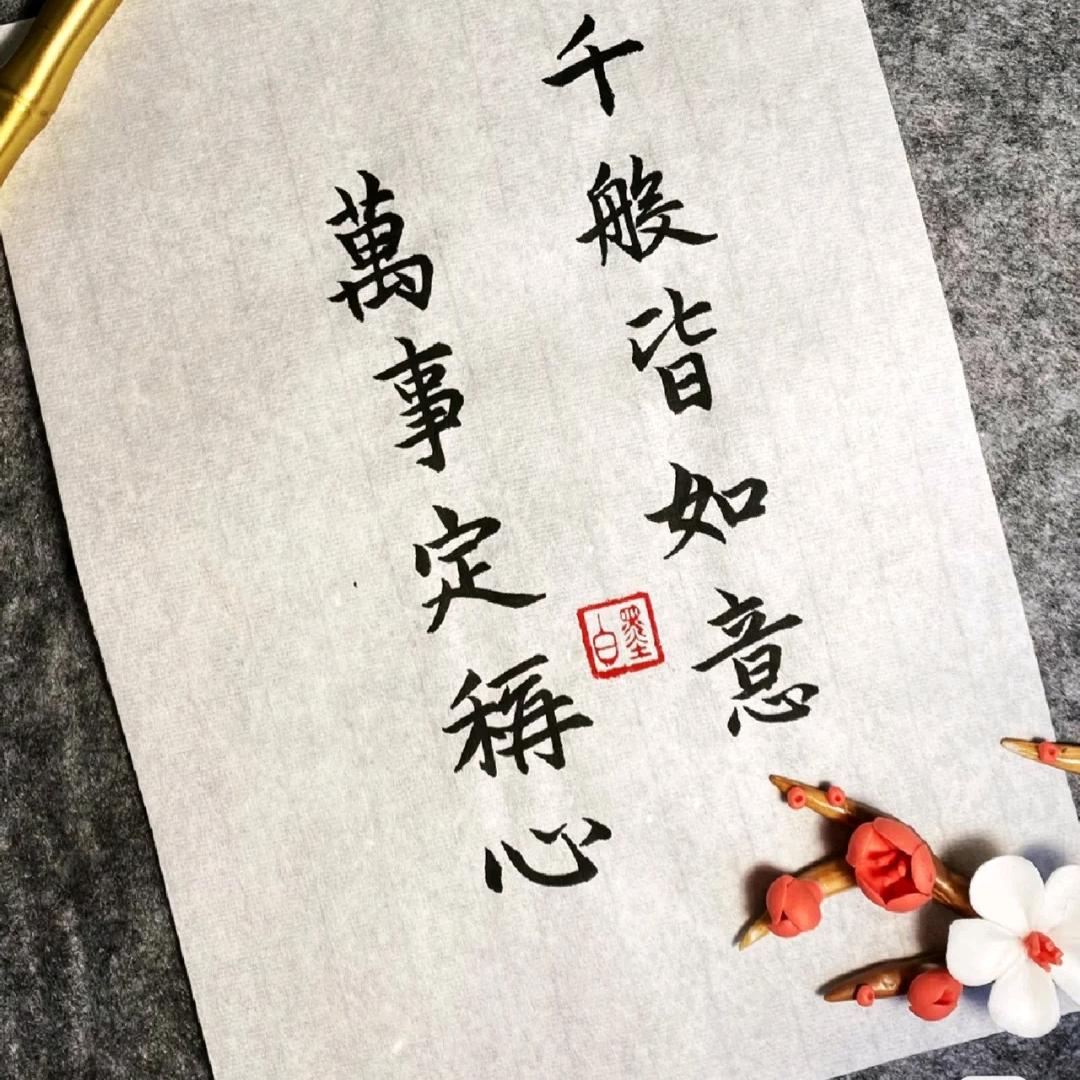 千般皆如意
萬事定稱心
墨白